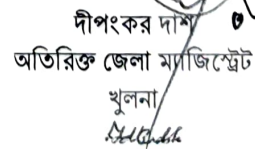 দীপংকর দাশ
অতিরিক্ত জেলা ম্যাজিস্ট্রেট
খুলনা